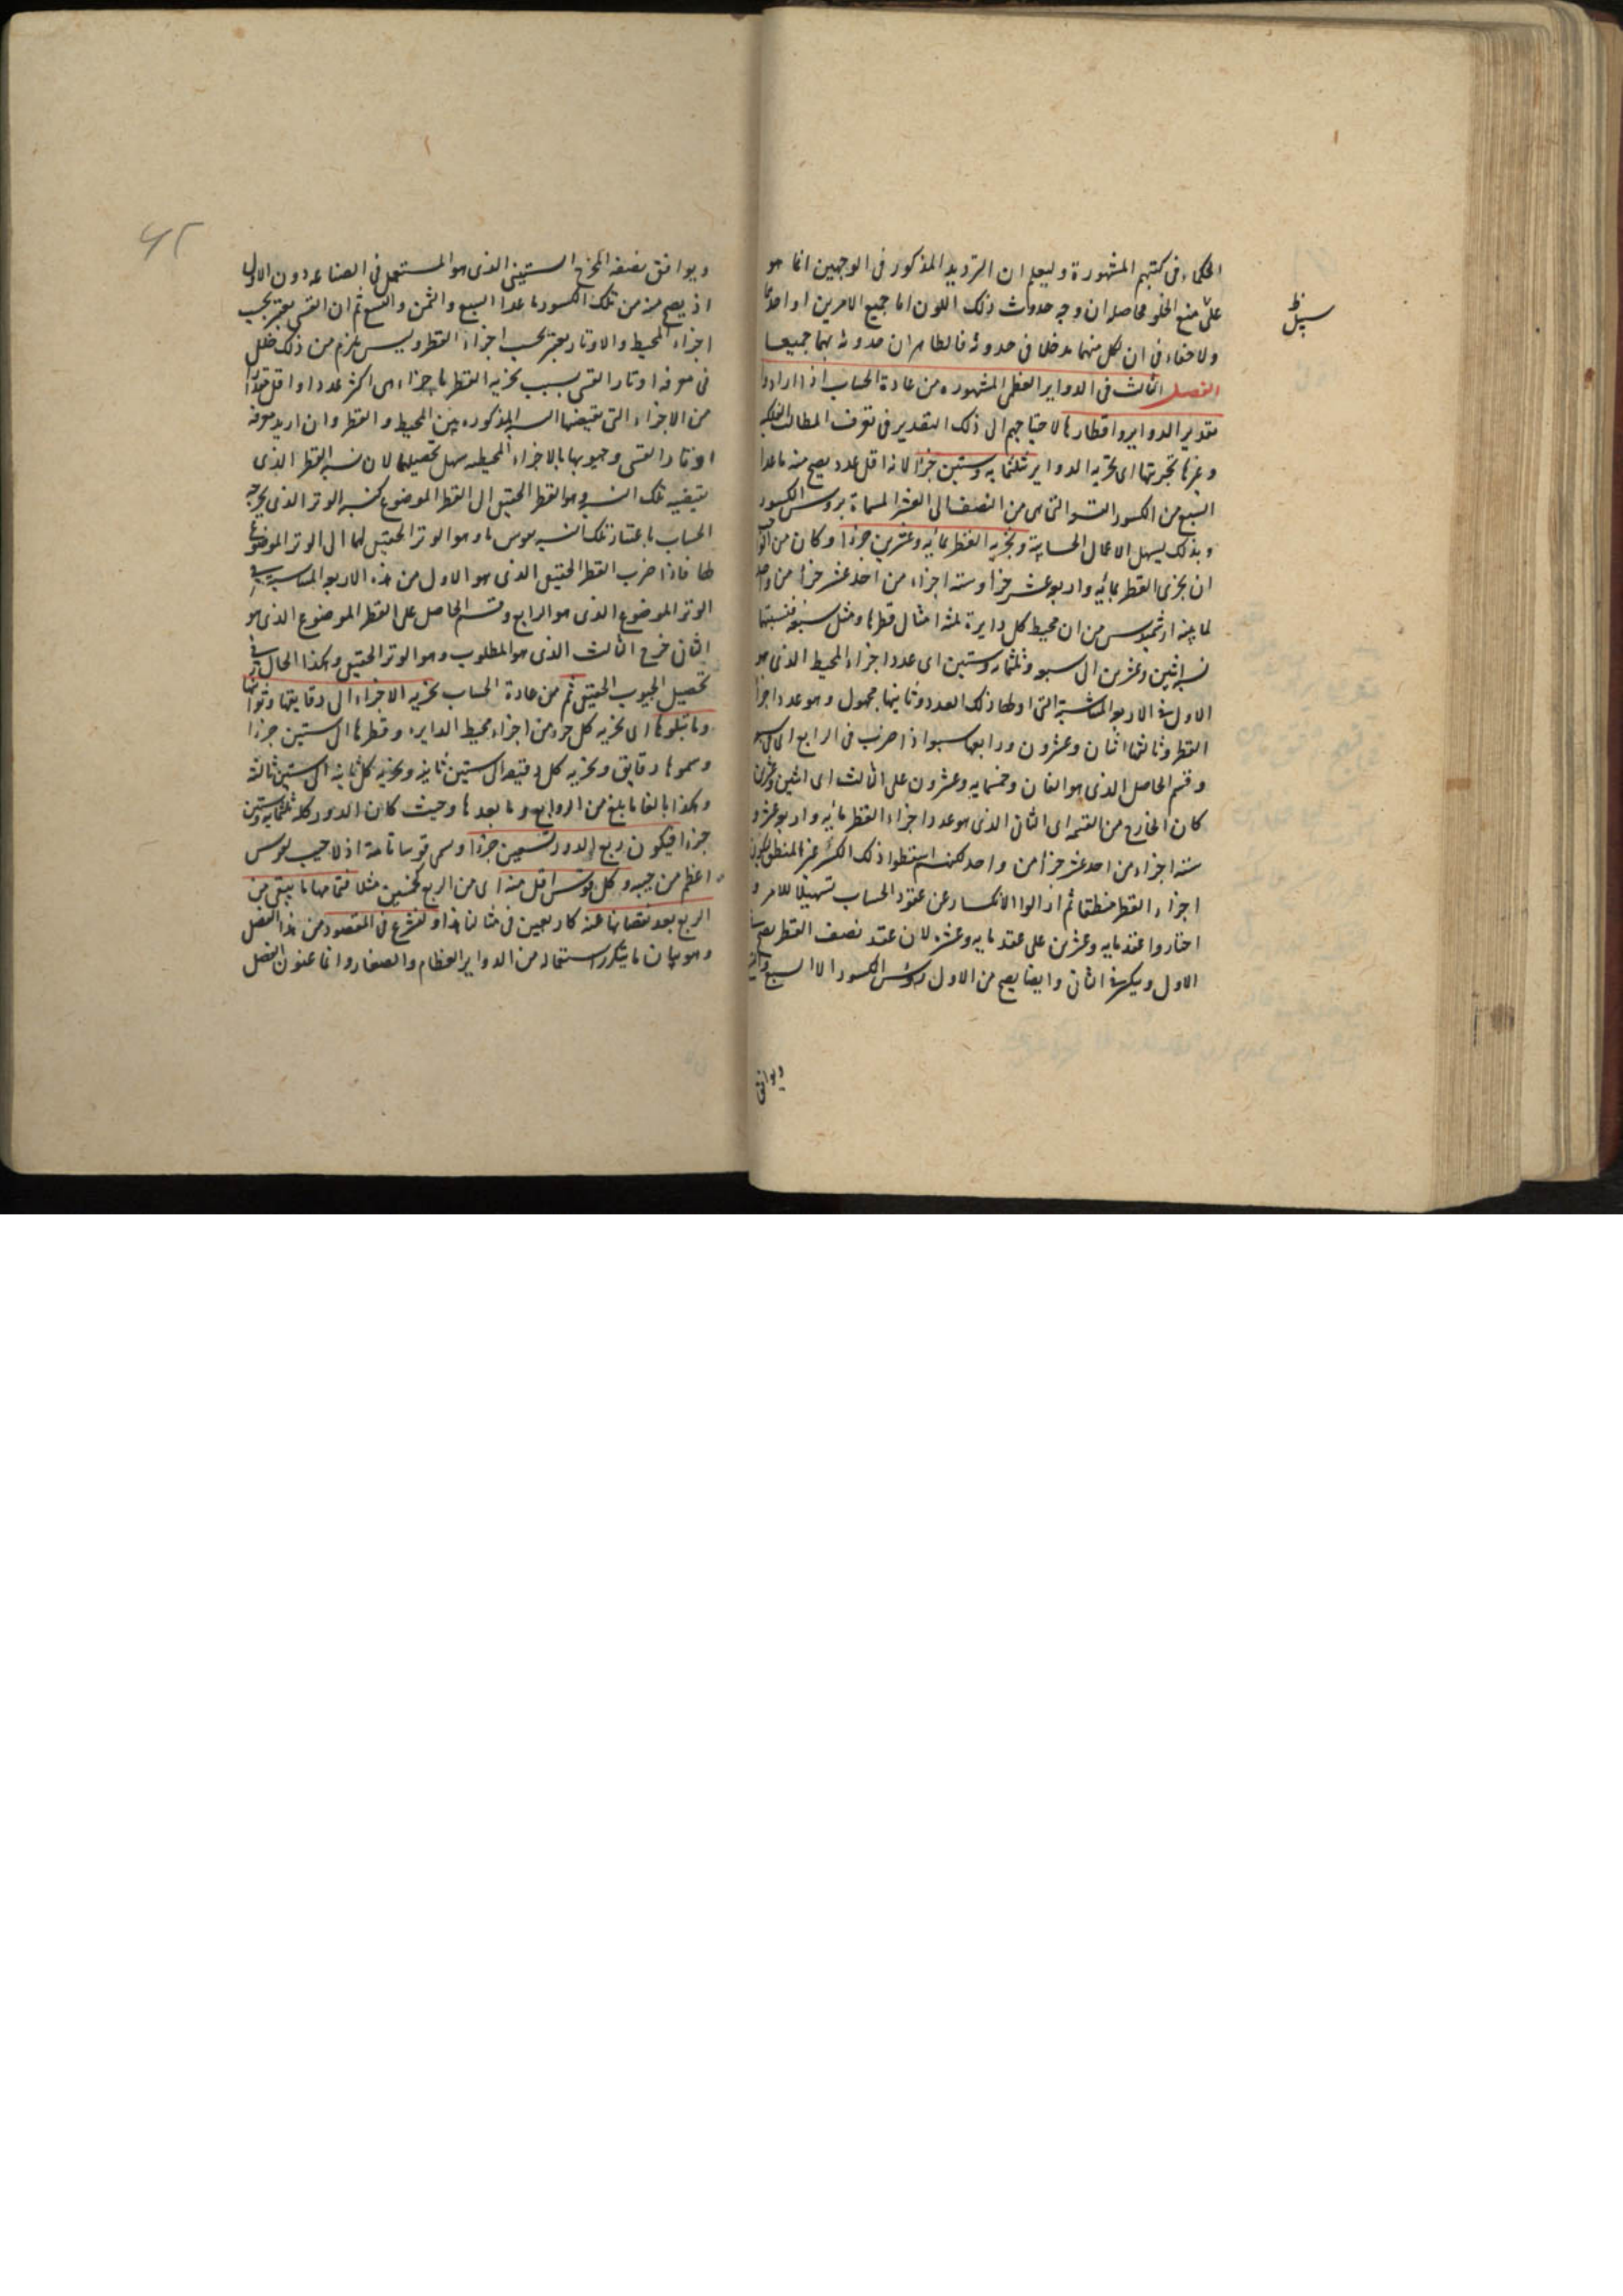 الحكماء فى كتبهم المشهورة وليعلم ان الترديد المذكور فى الوجهين انما هو
على منع الخلو فحاصله ان وجه حدوث ذلك اللون اما جميع الامرين او احدهما
ولا خفاء فى ان لكل منهما مدخلا فى حدوثه فالظاهر ان حدوثه بهما جميعا
الفصل الثالث فى الدواير العظمى المشهوره من عادة الحساب اذا ارادوا
تقدير الدواير واقطارها لاحتياجهم الى ذلك التقدير فى تعرف المطالب الفلكية
وغيرها تجزيتها اى تجزيه الدواير بثلثمايه وستين جزءا لانه اقل عدد يصح منه ما عدا
السبع من الكسور التسعة التى هى من النصف الى العشر المسماة برؤس الكسور
وبذلك يسهل الاعمال الحسابية وتجزيه القطر بمائيه وعشرين جزءا وكان من الواجب
ان يجزى القطر بمائيه واربعة عشر جزءا وستة اجزاء من احد عشر جزءا من واحد
لما بينه ارشميدس من ان محيط كل دايرة ثلثه امثال قطرها ومثل سبعه فنسبتها
نسبه اثنين وعشرين الى سبعه وثلثمايه وستين اى عدد اجزاء المحيط الذى هو
الاول فى الاربعه المتناسبة التى اولها ذلك العدد وثانيها مجهول وهو عدد اجزاء
القطر وثالثها اثنان وعشرون ورابعها سبعه اذا ضرب فى الرابع اى السبعه
وقسم الحاصل الذى هو الفان وخمسمايه وعشرون على الثالث اى اثنين وعشرين
كان الخارج من القسمه اى الثانى الذى هو عدد اجزاء القطر مائيه واربعه عشر و
سته اجزاء من احد عشر جزءا من واحد لكنهم اسقطوا ذلك الكسر غير المنطق ليكون
اجزاء القطر منطقا ثم ازالوا الانكسار عن عقود الحساب تسهيلا للامر و
اختاروا عقد مايه وعشرين على عقد مايه وعشره لان عقد نصف القطر يصح فى
الاول وينكسر فى الثانى وايضا يصح من الاول رؤس الكسور الا السبع والتسع
ويوافق
ويوافق نصفه المخرج الستينى الذى هو المستعمل فى الصناعه دون الاول
اذ يصح منه من تلك الكسور ما عدا السبع والثمن والتسع ثم ان القسى يعتبر بحسب
اجزاء المحيط والاوتار يعتبر بحسب اجزاء القطر وليس يلزم من ذلك خلل
فى معرفه اوتار القسى بسبب تجزيه القطر باجزاء هى اكثر عددا او اقل مقدارا
من الاجزاء التى تقتضيها النسبه المذكوره بين المحيط والقطر وان اريد معرفه
اوتار القسى وجيوبها بالاجزاء المحيطيه سهل تحصيلها لان نسبه القطر الذى
يقتضيه تلك النسبه وهو القطر الحقيقى الى القطر الموضوع كنسبه الوتر الذى يخرجه
الحساب باعتبار تلك النسبه وهو الوتر الحقيقى لها الى الوتر الموضوع
لها فاذا ضرب القطر الحقيقى الذى هو الاول من هذه الاربعه المتناسبه فى
الوتر الموضوع الذى هو الرابع وقسم الحاصل على القطر الموضوع الذى هو
الثانى خرج الثالث الذى هو المطلوب وهو الوتر الحقيقى وهكذا الحال فى
تحصيل الجيوب الحقيقى ثم من عادة الحساب تجزيه الاجزاء الى دقايقها وثوانيها
وما يتلوها اى تجزيه كل جزء من اجزاء محيط الدايره وقطرها الى ستين جزءا
وسموها دقايق وتجزيه كل دقيقه الى ستين ثانيه وتجزيه كل ثانيه الى ستين ثالثه
وهكذا بالغا ما بلغ من الروابع وما بعدها وحيث كان الدور كله ثلثمايه وستين
جزءا فيكون ربع الدور تسعين جزءا وسمى قوسا تامة اذ لا جيب لقوس
اعظم من جيبه وكل قوس اقل منه اى من الربع كخمسين مثلا فتمامها ما يبقى من
الربع بعد نقصانها عنه كاربعين فى مثالنا هذا ولنشرع فى المقصود من هذا الفصل
وهو بيان ما يتكرر استعماله من الدواير العظام والصغار وانما عنون الفصل